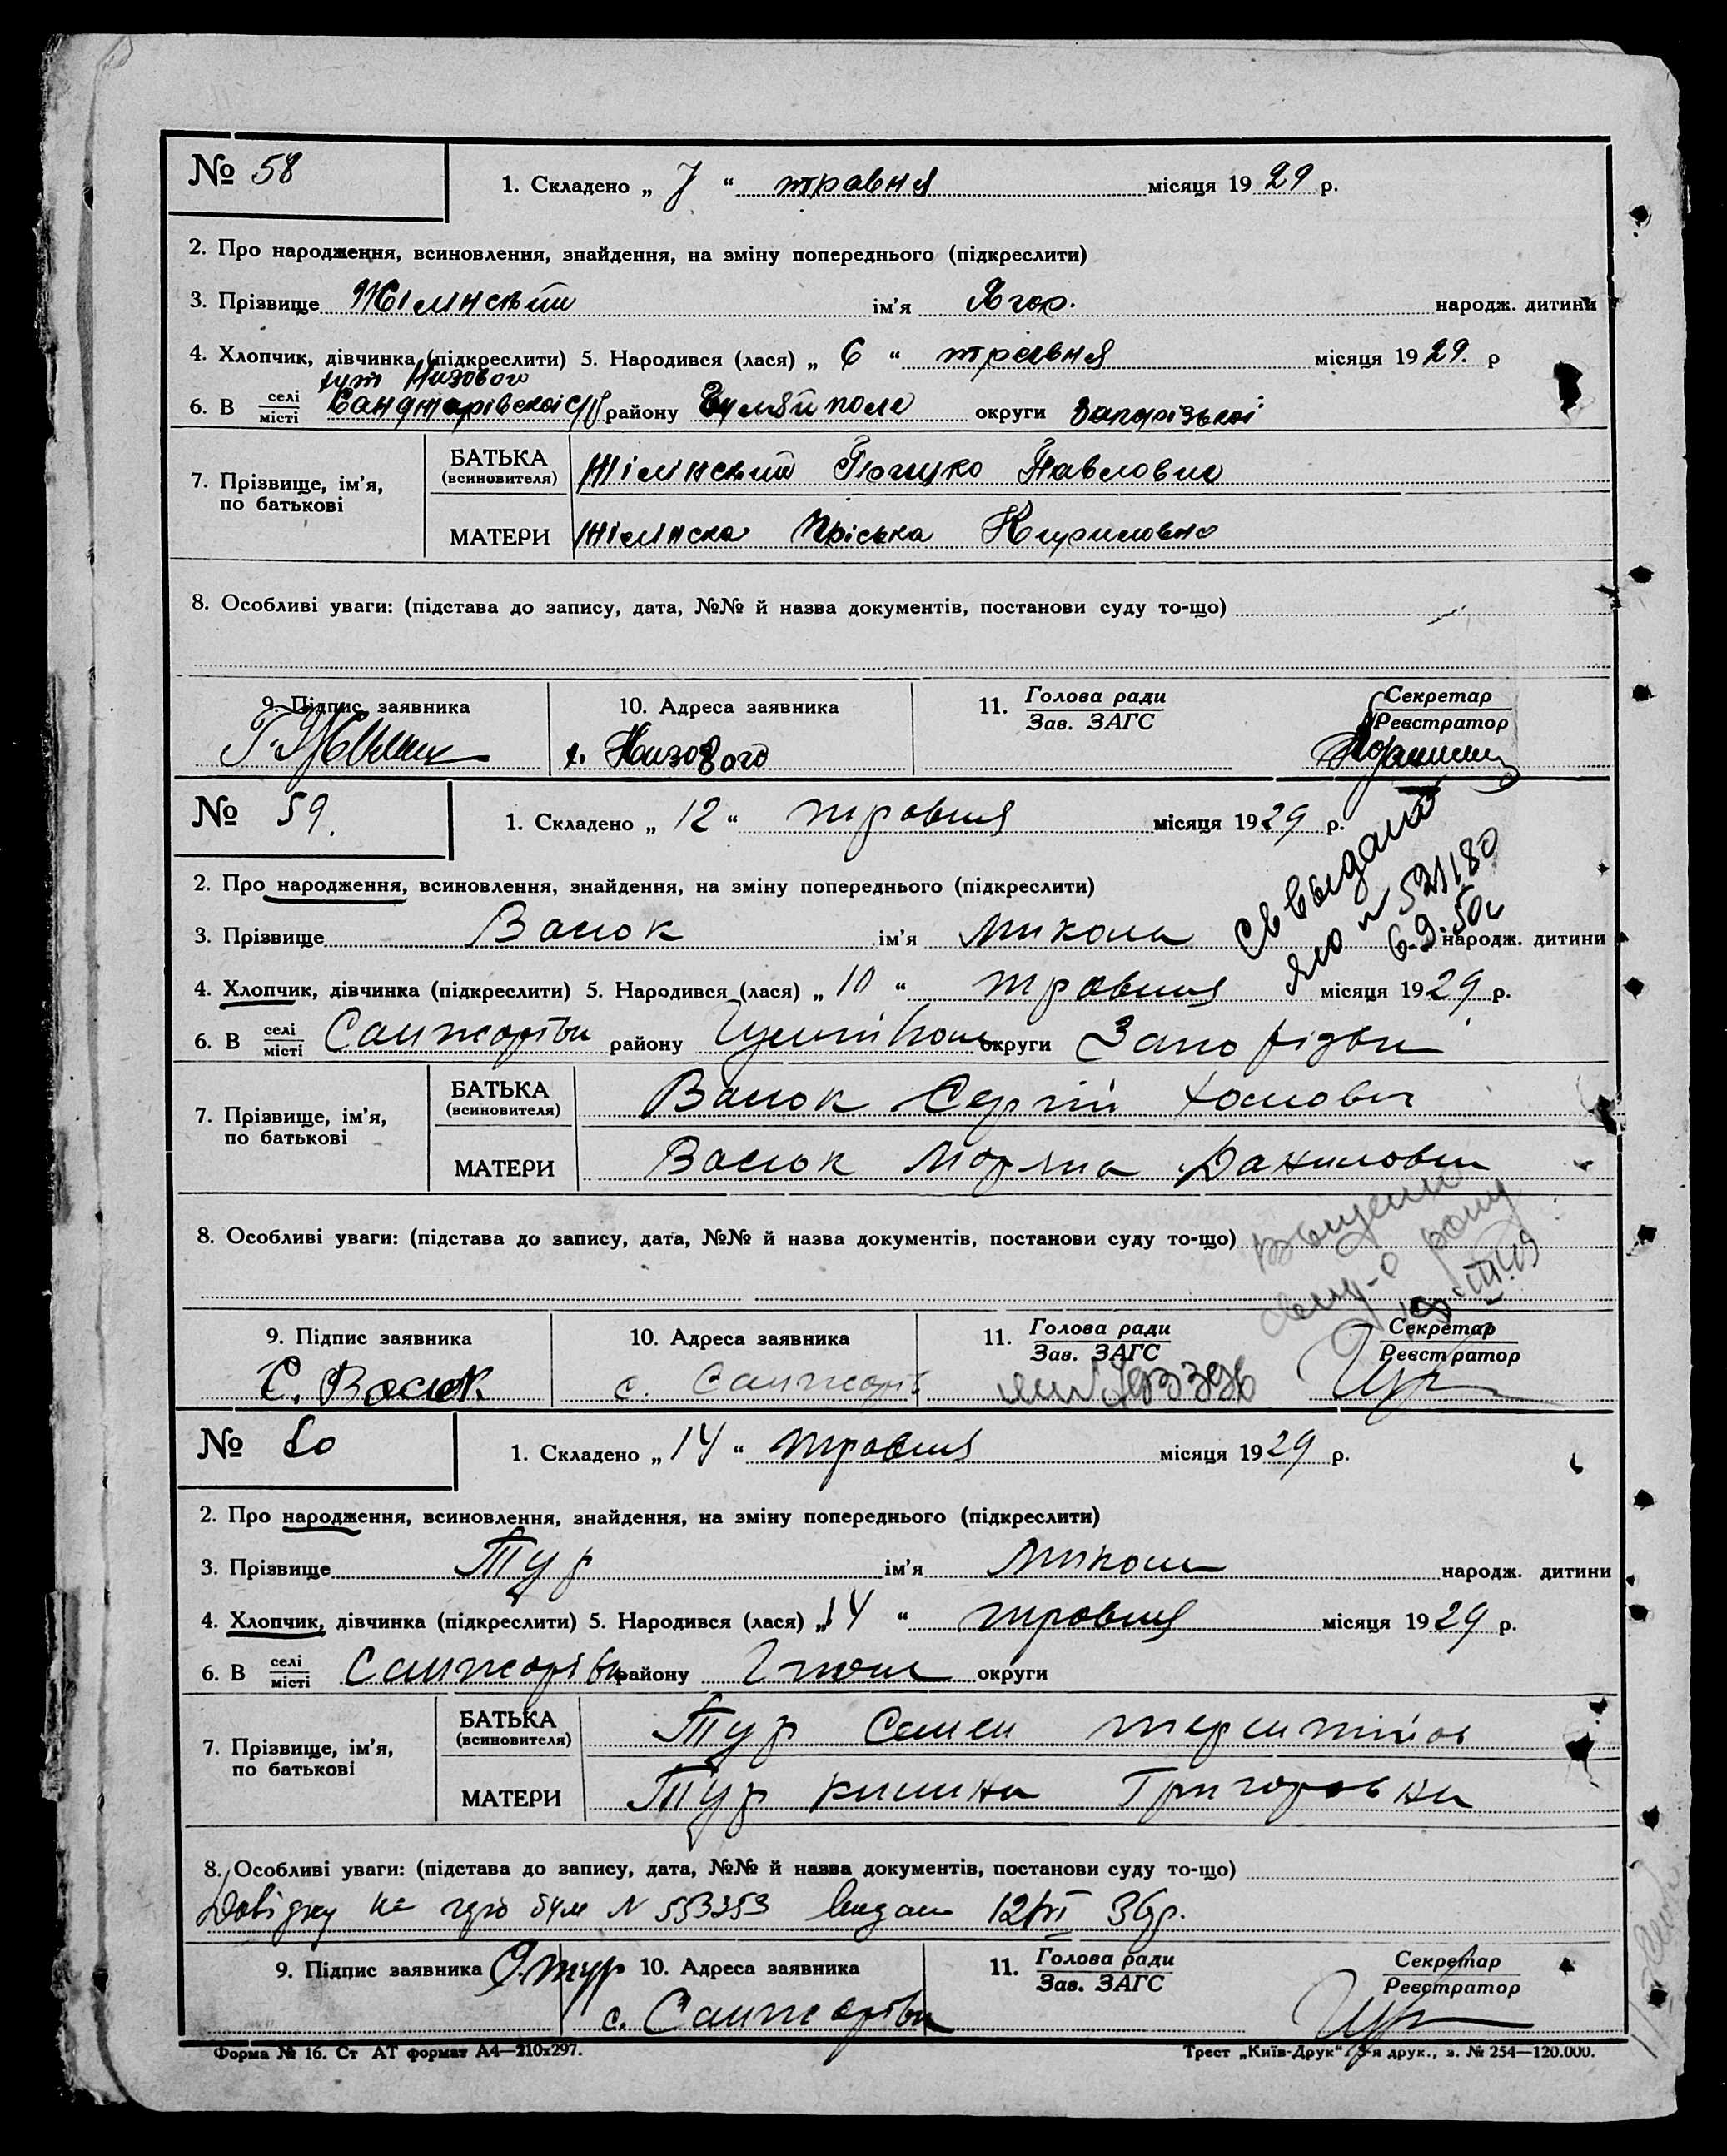 № 58
1. Складено „ 7 “ травня місяця 19 29 р.
2. Про народження, всиновлення, знайдення, на зміну попереднього (підкреслити)
3. Прізвище Жілінский ім’я Ягор. народж. дитини
4. Хлопчик, дівчинка (підкреслити) 5. Народився (лася) „ 6 “ травня місяця 19 29. р
хут Низового
6. В селі місті району Гуляйполе округи Запорізької
7. Прізвище, ім’я, по батькові
БАТЬКА (всиновителя) Жілінский Павлович
МАТЕРИ Жілінска Пріська Кириловна
8. Особливі уваги: (підстава до запису, дата, №№ й назва документів, постанови суду то-що)
9. Підпис заявника 10. Адреса заявника 11. Голова ради Зав. ЗАГС Секретар Реєстратор
х. Низового
№ 59.
1. Складено „ 12 “ травня місяця 19 29 р.
2. Про народження, всиновлення, знайдення, на зміну попереднього (підкреслити)
3. Прізвище Васюк ім’я Микола народж. дитини
4. Хлопчик, дівчинка (підкреслити) 5. Народився (лася) „ 10 “ травня місяця 19 29 р.
6. В селі місті Санжарівки району округи Запорізьки
7. Прізвище, ім’я, по батькові
БАТЬКА (всиновителя) Васюк Сергій Хомович
МАТЕРИ Васюк Моряна Даниловна
8. Особливі уваги: (підстава до запису, дата, №№ й назва документів, постанови суду то-що)
9. Підпис заявника 10. Адреса заявника 11. Голова ради Зав. ЗАГС Секретар Реєстратор
С. Васюк с. Санжарів
№ 60
1. Складено „ 14 “ травня місяця 19 29 р.
2. Про народження, всиновлення, знайдення, на зміну попереднього (підкреслити)
3. Прізвище Тур ім’я Микола народж. дитини
4. Хлопчик, дівчинка (підкреслити) 5. Народився (лася) „ 14 “ травня місяця 19 29 р.
6. В селі місті Санжарівки району округи
7. Прізвище, ім’я, по батькові
БАТЬКА (всиновителя) Тур Семен
МАТЕРИ Тур Григоровна
8. Особливі уваги: (підстава до запису, дата, №№ й назва документів, постанови суду то-що)
Довідку № 553353 видано 12/VI 36р.
9. Підпис заявника 10. Адреса заявника 11. Голова ради Зав. ЗАГС Секретар Реєстратор
с. Санжарівки
Форма № 16. Ст АТ формат А4—210х297.
Трест „Київ-Друк“. 3-я друк., з. № 254—120.000.